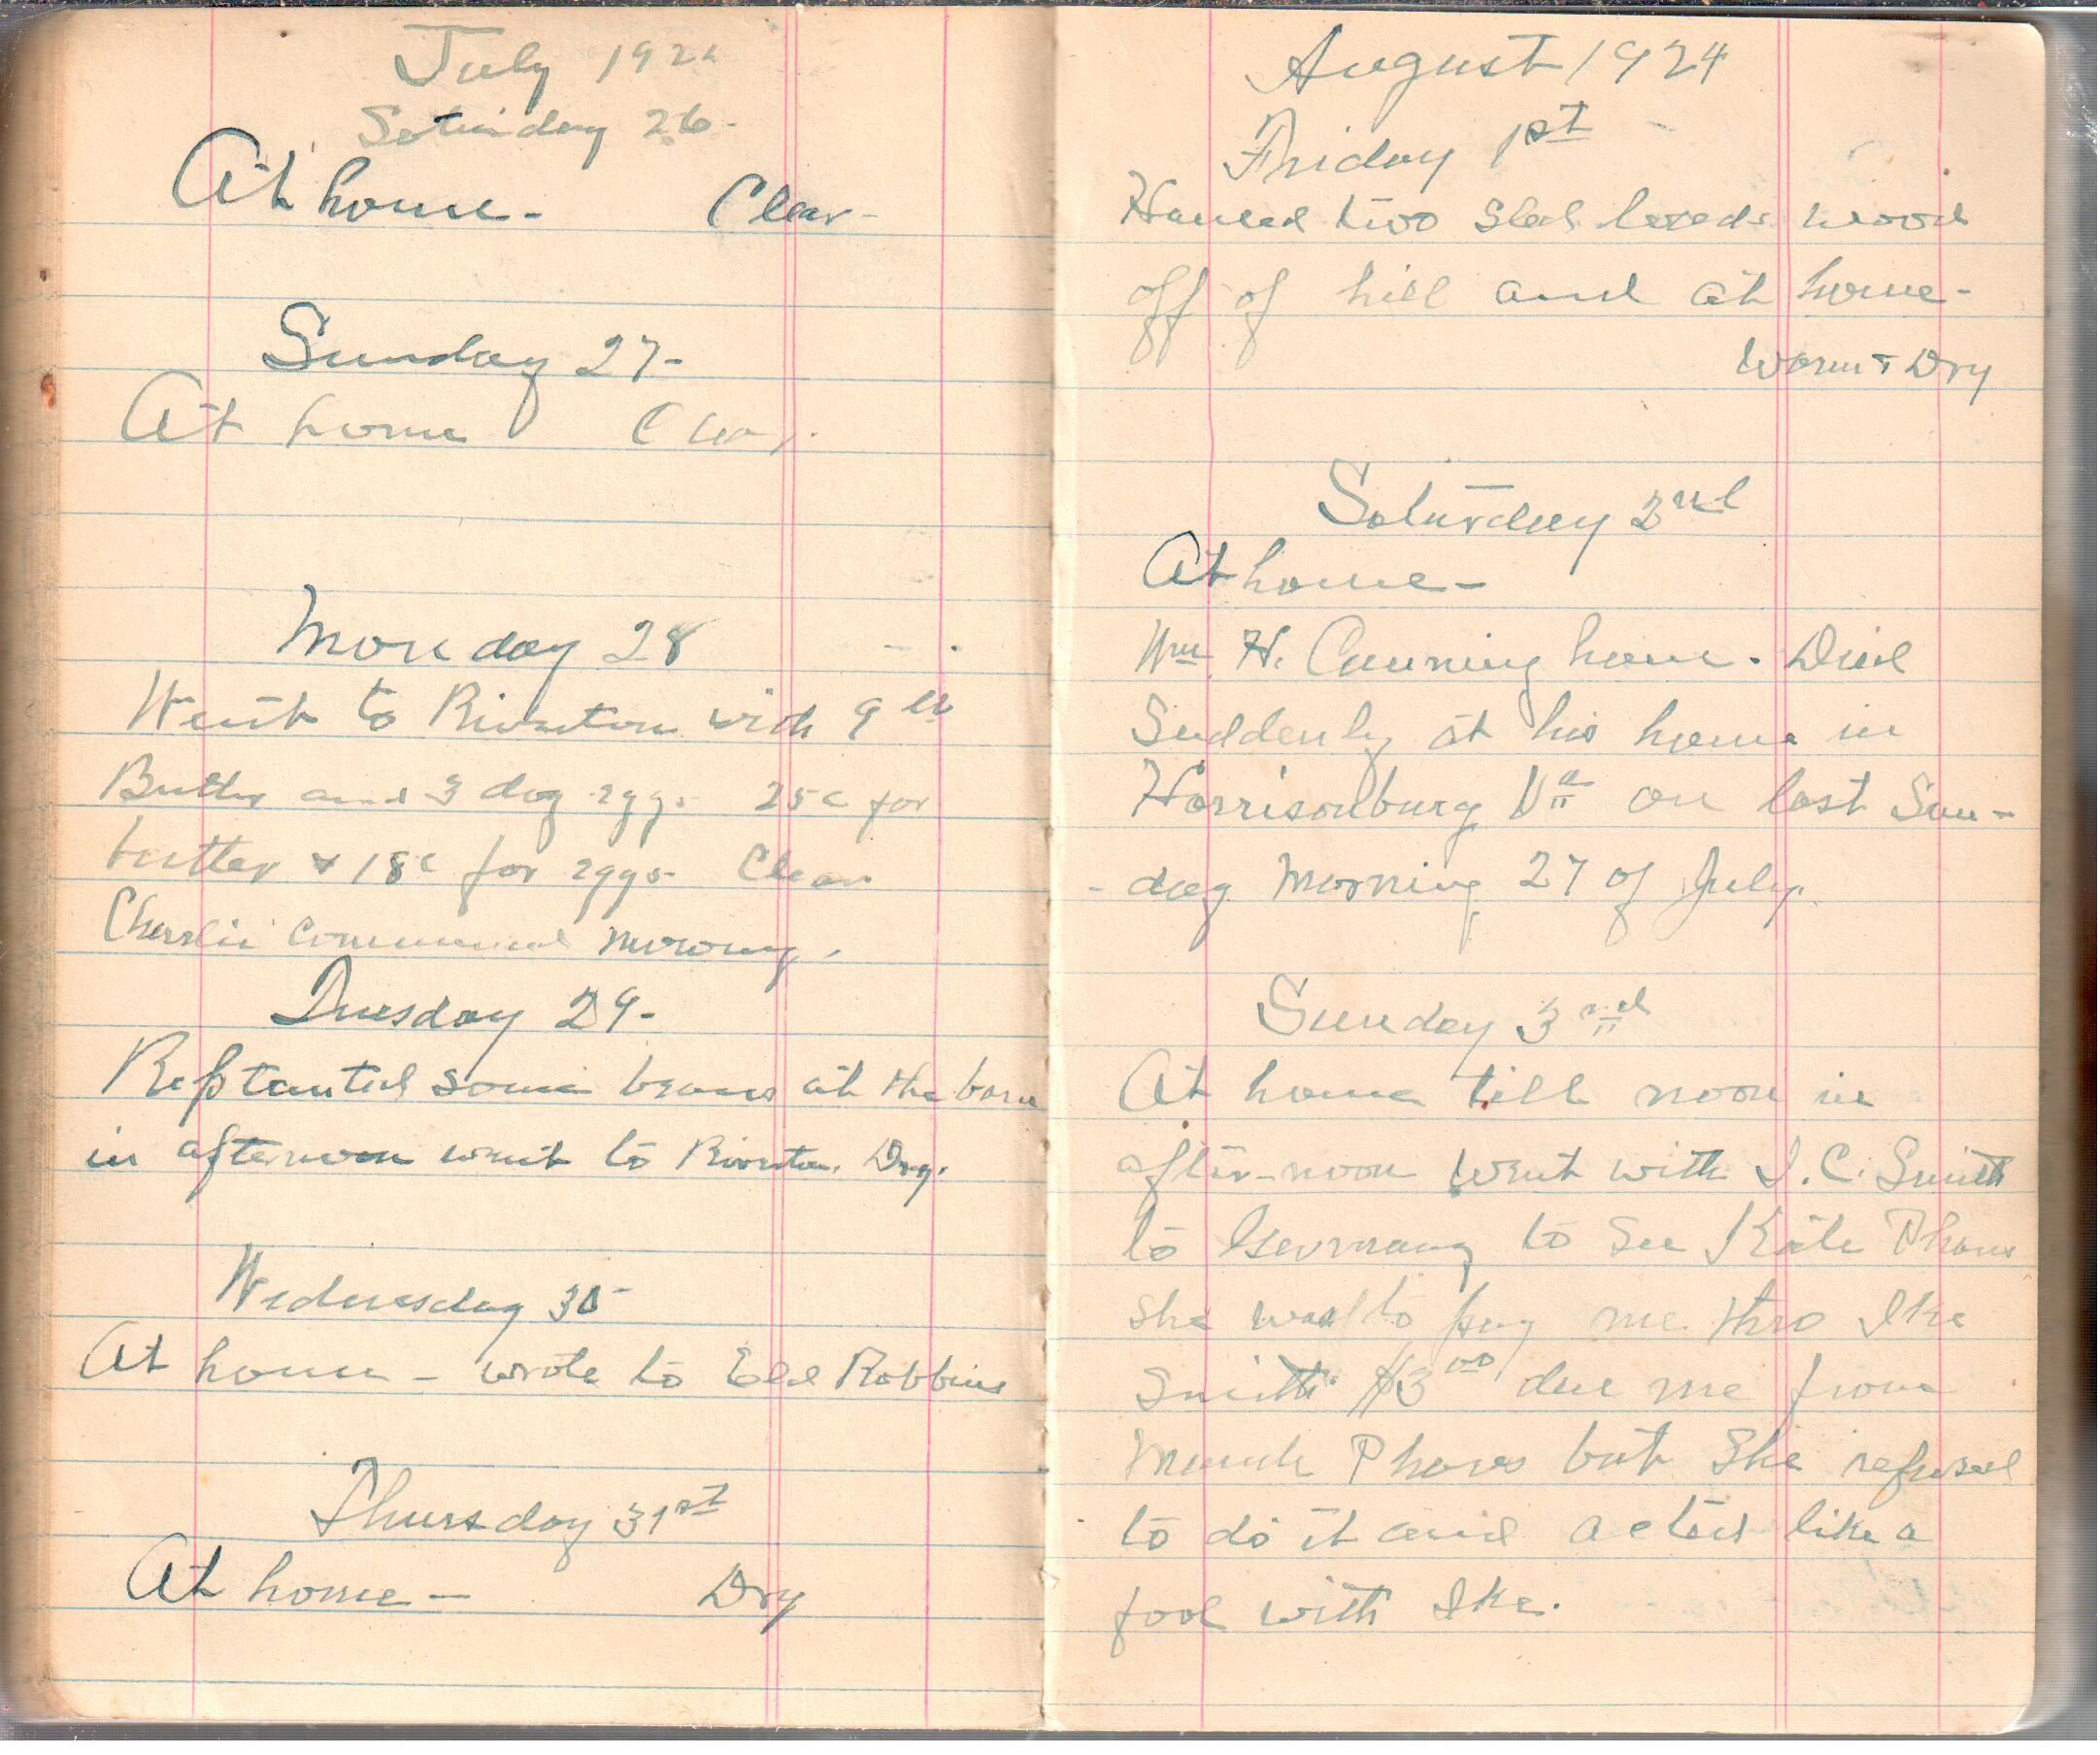 July 192
Saturday 26-
At home- Clear-
Sunday 27-
At home Clear.
Monday 28
Went to Riverton with 9 lb
Butter and 3 doz eggs 25c for
butter & 18c for eggs- Clear
Charlie commenced mowing.
Tuesday 29-
Replanted some beans at the barn
in afternoon went to Riverton. Dry.
Wednesday 30-
At home - wrote to Robbins
Thursday 31st
At home- Dry
August 1924
Friday 1st
Hauled two sled loads wood
off of hill and at home-
Warm & Dry
Saturday 2nd
At home-
Wm H. Cunningham. Died
Suddenly at his home in
Harrisonburg Va on last Sun-
-day morning 27 of July.
Sunday 3rd
At home till noon in
after-noon went with I. C. Smith
to Germany to see Kate Phares
she was to pay me thro Ike
Smith $3.00 due me from
Phares but She refused
to do it and acted like a
fool with Ike.